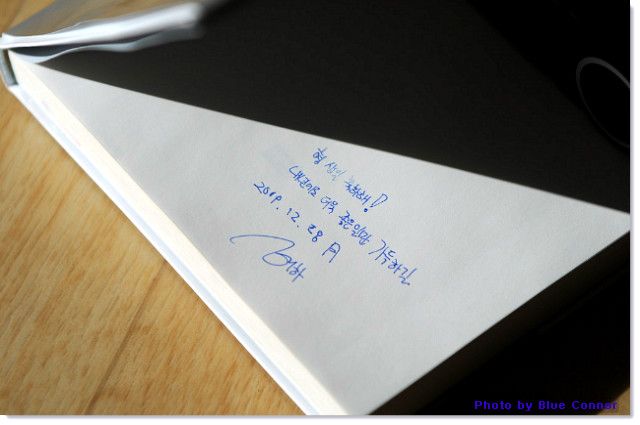 형 생일 축하해!
내년에도 더욱 좋은일만 가득하길
2009. 12. 28 月
Photo by Blue Conner